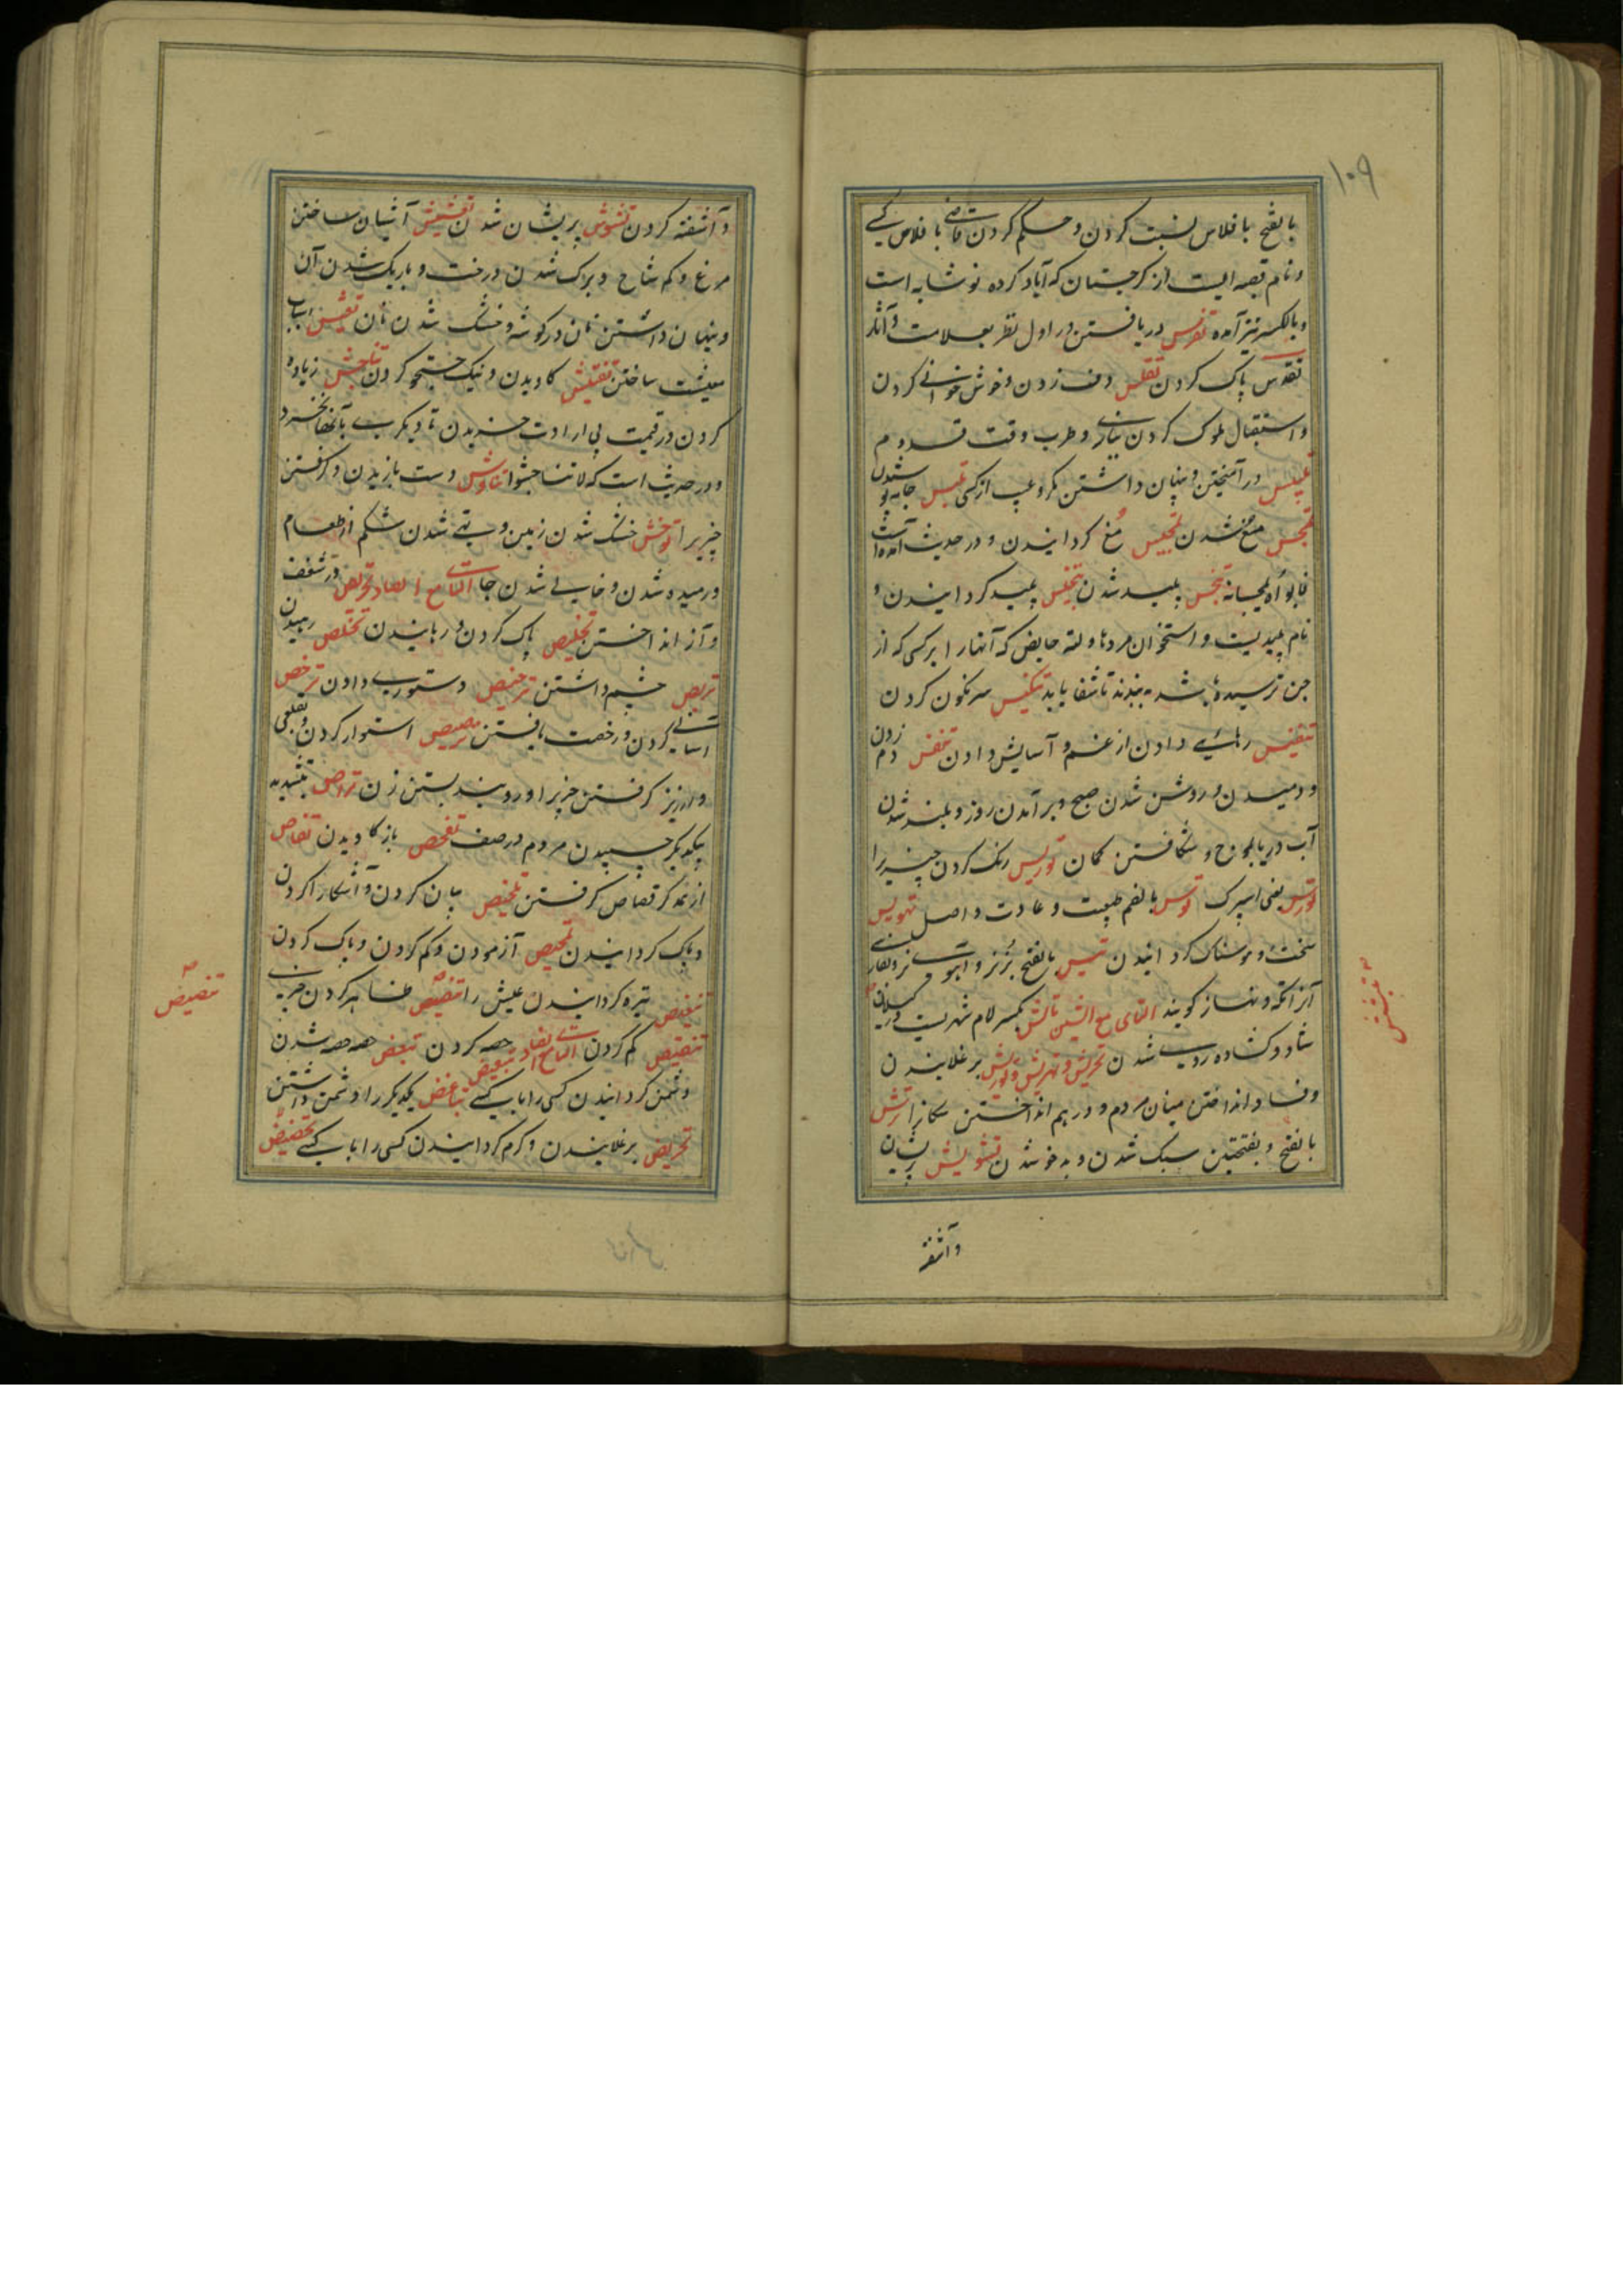 ۱۰۹
بالفتح با فلاس نسبت کردن و حکم کردن قاضی با فلاس کسی
و نام قصبه ایست از کرجستان که آباد کرده نوشابه است
و بالکسر نیز آمده تفرس دریافتن در اول نظر بعلامت و آثار
تقدس پاک کردن تقلس دف زدن و خوش خوانی کردن
و استقبال ملوک کردن ببازی و طرب وقت قدوم
تلبیس در آمیختن و پنهان داشتن مکر و عیب از کسی تلبس جامه پوشیدن
تمجس مغ شدن تمجیس مغ گردانیدن و در حدیث آمده است
فابواه یمجسانه تنجس پلید شدن تنجیس پلید کردانیدن و
نام پلیدیست و استخوان مردها و لته حایض که آنها را بر کسی که از
جن ترسیده باشد ببندند تا شفا یابد تنکیس سرنکون کردن
تنفیس رهائی دادن از غم و آسایش دادن تنفس دم زدن
و دمیدن و روشن شدن صبح و بر آمدن روز و بلند شدن
آب دریا بموج و شکافتن کمان توریس رنک کردن چیز را
بورس یعنی اسپرک توس بالضم طبیعت و عادت و اصل تهویس
سخت و هوسناک کردانیدن تیس بالفتح بز نر و آهوی نر و بفارسی
آنرا تکه و نهاز کویند التای مع الشین تالش بکسر لام شهریست در کیلان
شاد و کشاده روی شدن تحریش و تهریش و توریش بر غلانیدن
و فساد انداختن میان مردم و در هم انداختن سکان را ترش
بالفتح و بفتحتین سبک شدن و بد خو شدن تشویش پریشان
وآشفته
و آشفته کردن تشوش پریشان شدن تعشیش آشیان ساختن
مرغ و کم شاخ و برک شدن درخت و باریک شدن آن
و پنهان داشتن نان در کوشه و خشک شدن نان تعیش اسباب
معیشت ساختن تفتیش کاویدن و نیک جستجو کردن تناجش زیاده
کردن در قیمت بی ارادت خریدن تا دیکری بآن بخرد
و در حدیث است که لا تناجشوا تناوش دست یازیدن و کرفتن
چیزیرا توخش خشک شدن زمین و تهی شدن شکم از طعام
و رمیده شدن و خالی شدن جا التای مع الصاد تحریص در شغف
و آز انداختن تخلیص پاک کردن و رهانیدن تخلص رهیدن
تربص چشم داشتن ترخیص دستوری دادن ترخص
آسانی کردن و رخصت یافتن ترصیص استوار کردن و بقلعی
و ارزیز کرفتن چیز را و رو بند بستن زن تراص بتشدید
یکدیکر چسپیدن مردم در صف تفحص باز کاویدن تقاص
از همدکر قصاص کرفتن تلخیص بیان کردن و آشکارا کردن
و پاک کردانیدن تمحیص آزمودن و کم کردن و پاک کردن
تنغیص تیره کردانیدن عیش را تنصیص ظاهر کردن چیزی
تنقیص کم کردن التای مع الضاد تبعیض حصه کردن تبعض حصه حصه شدن
دشمن کردانیدن کسی را با کسی تباغض یکدیکر را دشمن داشتن
تحریض بر غلانیدن و کرم کردانیدن کسی را با کسی تحضیض
تنصیص